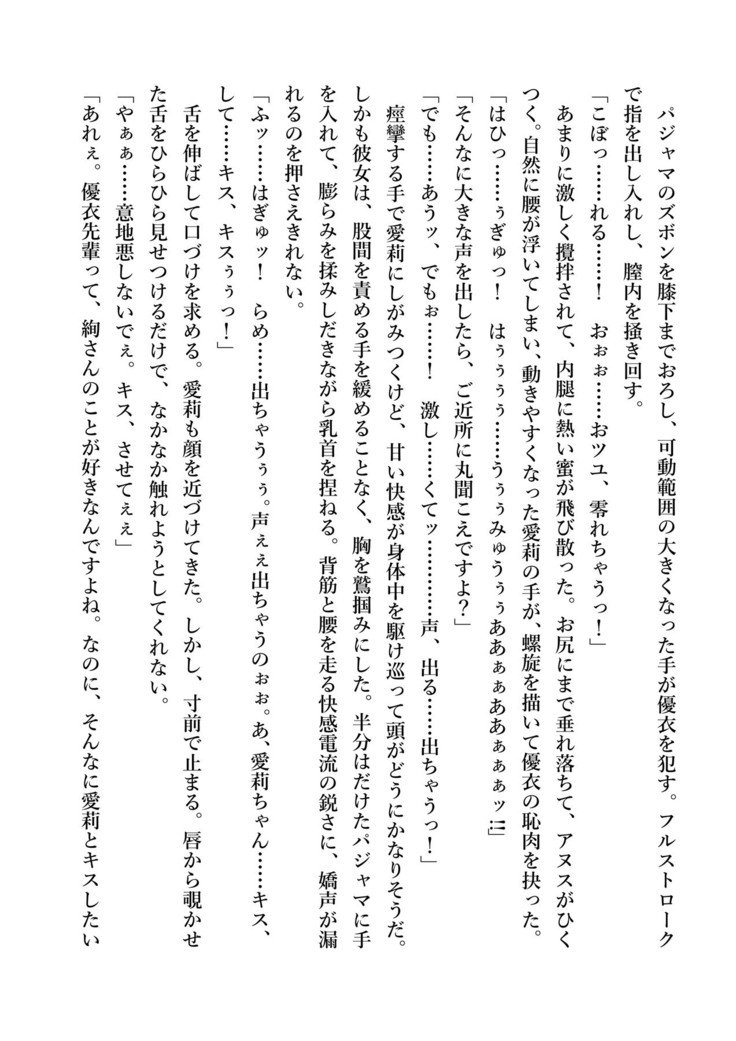 パジャマのズボンを膝下までおろし、可動範囲の大きくなった手が優衣を犯す。フルストローク
で指を出し入れし、膣内を掻き回す。
「こぼっ……れる……！　おぉぉ……おツユ、零れちゃうっ！」
あまりに激しく攪拌されて、内腿に熱い蜜が飛び散った。お尻にまで垂れ落ちて、アヌスがひく
つく。自然に腰が浮いてしまい、動きやすくなった愛莉の手が、螺旋を描いて優衣の恥肉を抉った。
「はひっ……ぅぎゅっ！　はぅぅぅぅ……うぅぅみゅうぅぅああぁぁああぁぁぁッ!!」
「そんなに大きな声を出したら、ご近所に丸聞こえですよ？」
「でも……あうッ、でもぉ……！　激し……くてッ…………声、出る……出ちゃうっ！」
痙攣する手で愛莉にしがみつくけど、甘い快感が身体中を駆け巡って頭がどうにかなりそうだ。
しかも彼女は、股間を責める手を緩めることなく、胸を鷲掴みにした。半分はだけたパジャマに手
を入れて、膨らみを揉みしだきながら乳首を捏ねる。背筋と腰を走る快感電流の鋭さに、嬌声が漏
れるのを押さえきれない。
「ふッ……はぎゅッ！　らめ……出ちゃうぅぅ。声ぇぇ出ちゃうのぉぉ。あ、愛莉ちゃん……キス、
して……キス、キスぅぅっ！」
舌を伸ばして口づけを求める。愛莉も顔を近づけてきた。しかし、寸前で止まる。唇から覗かせ
た舌をひらひら見せつけるだけで、なかなか触れようとしてくれない。
「やぁぁ……意地悪しないでぇ。キス、させてぇぇ」
「あれぇ。優衣先輩って、絢さんのことが好きなんですよね。なのに、そんなに愛莉とキスしたい